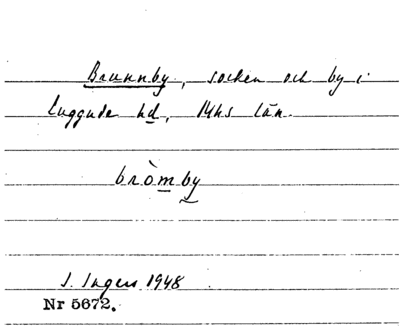 Brunnby, socken och by i
Luggude hd, Mhs län.
bròmby
I. Ingers 1948
Nr 5672.